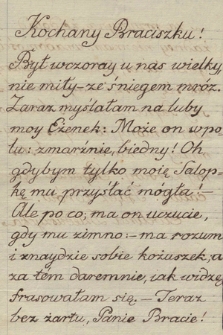 Kochany Braciszku!
Był wczoray u nas wielky
nie miły - ze śniegem mróz.
Zaraz myślałam na luby
moy Eżenek: Może on w po
lu: zmarźnie, biedny! Oh
gdybym tylko moię Salop-
kę mu przysłać mógła! -
Ale po co, ma on uczucie,
gdy mu zimno: - ma rozum
i znaydzie sobie kożuszek, a
za tém daremnie, iak widzę
frasowałam się, - Teraz
bez żartu, Panie Bracie! -